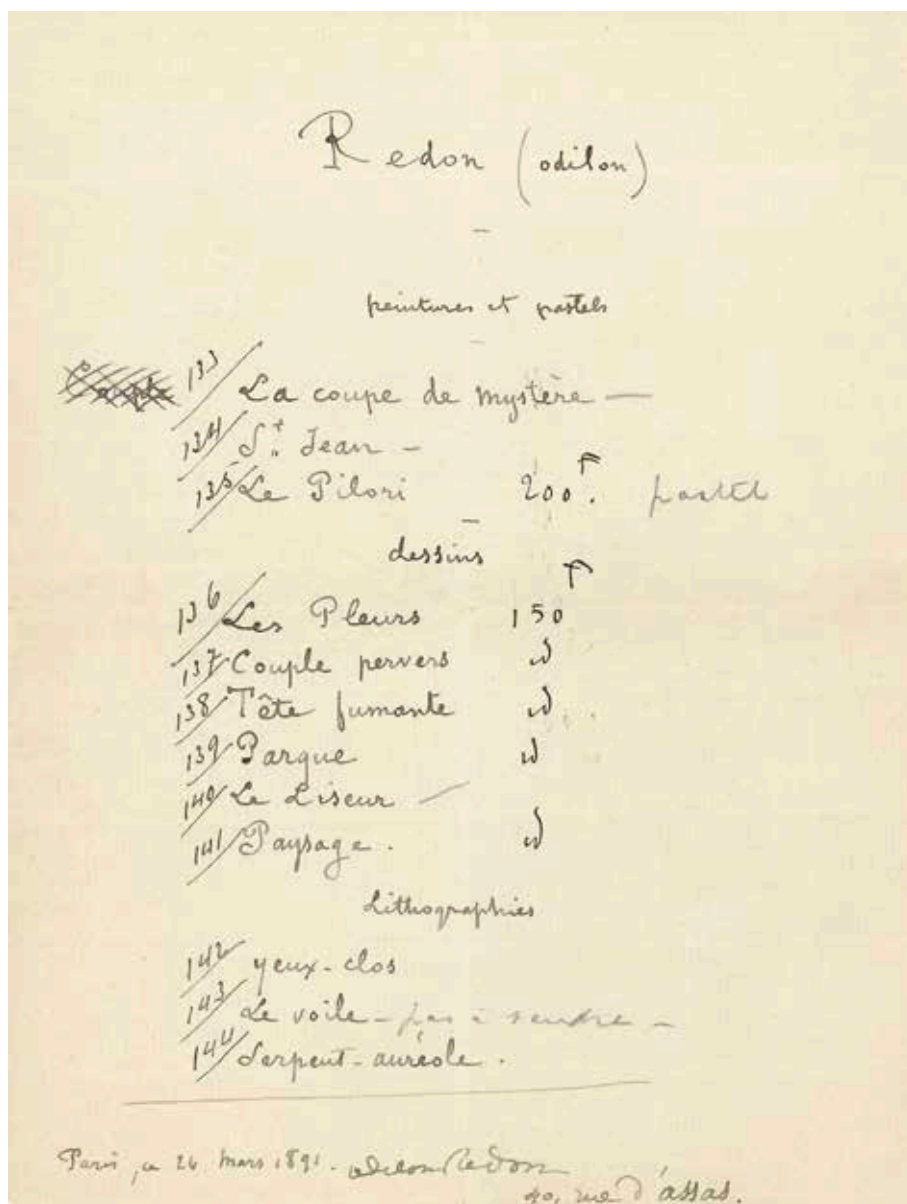 Redon (odilon)
peintures et pastels
133/ La coupe de mystère —
134/ St Jean —
135/ Le Pilori 200F. pastel
dessins
136/ Les Pleurs 150F
137/ Couple pervers id
138/ Tête fumante id
139/ Parque id
140/ Le Liseur —
141/ Paysage. id
Lithographies
142/ yeux-clos
143/ Le voile - pas à vendre -
144/ Serpent-auréole.
Paris, ce 26 Mars 1891. odilon Redon
40, rue d'assas.